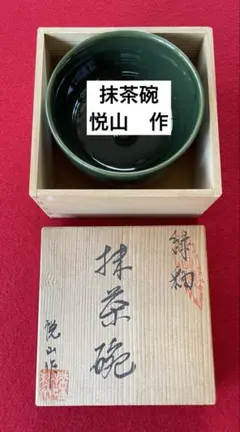 抹茶碗
悦山　作
緑釉
抹茶碗
悦山作